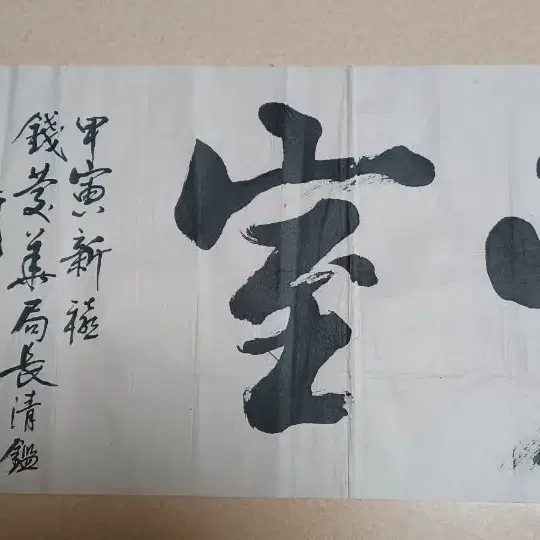 室
甲寅新禧
錢慶華局長清鑑